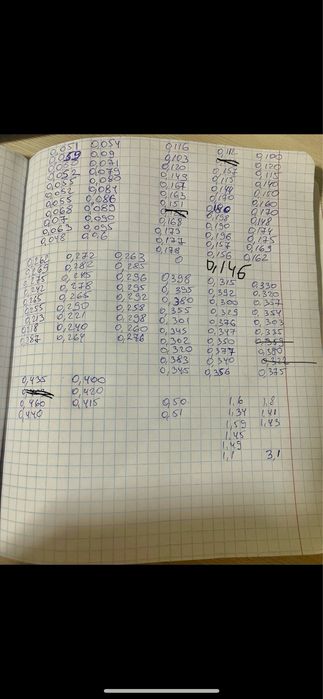 0,051 0,054 0,116 0,100
0,059 0,09 0,103 0,120
0,071 0,120 0,157 0,115
0,079 0,143 0,115 0,140
0,055 0,080 0,167 0,144 0,150
0,052 0,084 0,163 0,170 0,160
0,055 0,086 0,151 0,170
0,068 0,089 0,198 0,148
0,07 0,090 0,168 0,190 0,174
0,063 0,095 0,173 0,196 0,175
0,048 0,06 0,177 0,157 0,169
0,178 0,156 0,162
0,272 0,263 0 0,146
0,269 0,282 0,285
0,275 0,285 0,296 0,398 0,315 0,330
0,242 0,278 0,295 0,395 0,392 0,320
0,265 0,266 0,292 0,380 0,300 0,357
0,255 0,290 0,258 0,355 0,329 0,354
0,213 0,221 0,298 0,301 0,376 0,303
0,218 0,240 0,260 0,345 0,347 0,335
0,287 0,264 0,276 0,302 0,350
0,320 0,377 0,380
0,383 0,340
0,345 0,356 0,375
0,435 0,400
0,420
0,460 0,415 0,50 1,6 1,8
0,440 0,51 1,34 1,41
1,59 1,43
1,45
1,49
1,1 3,1